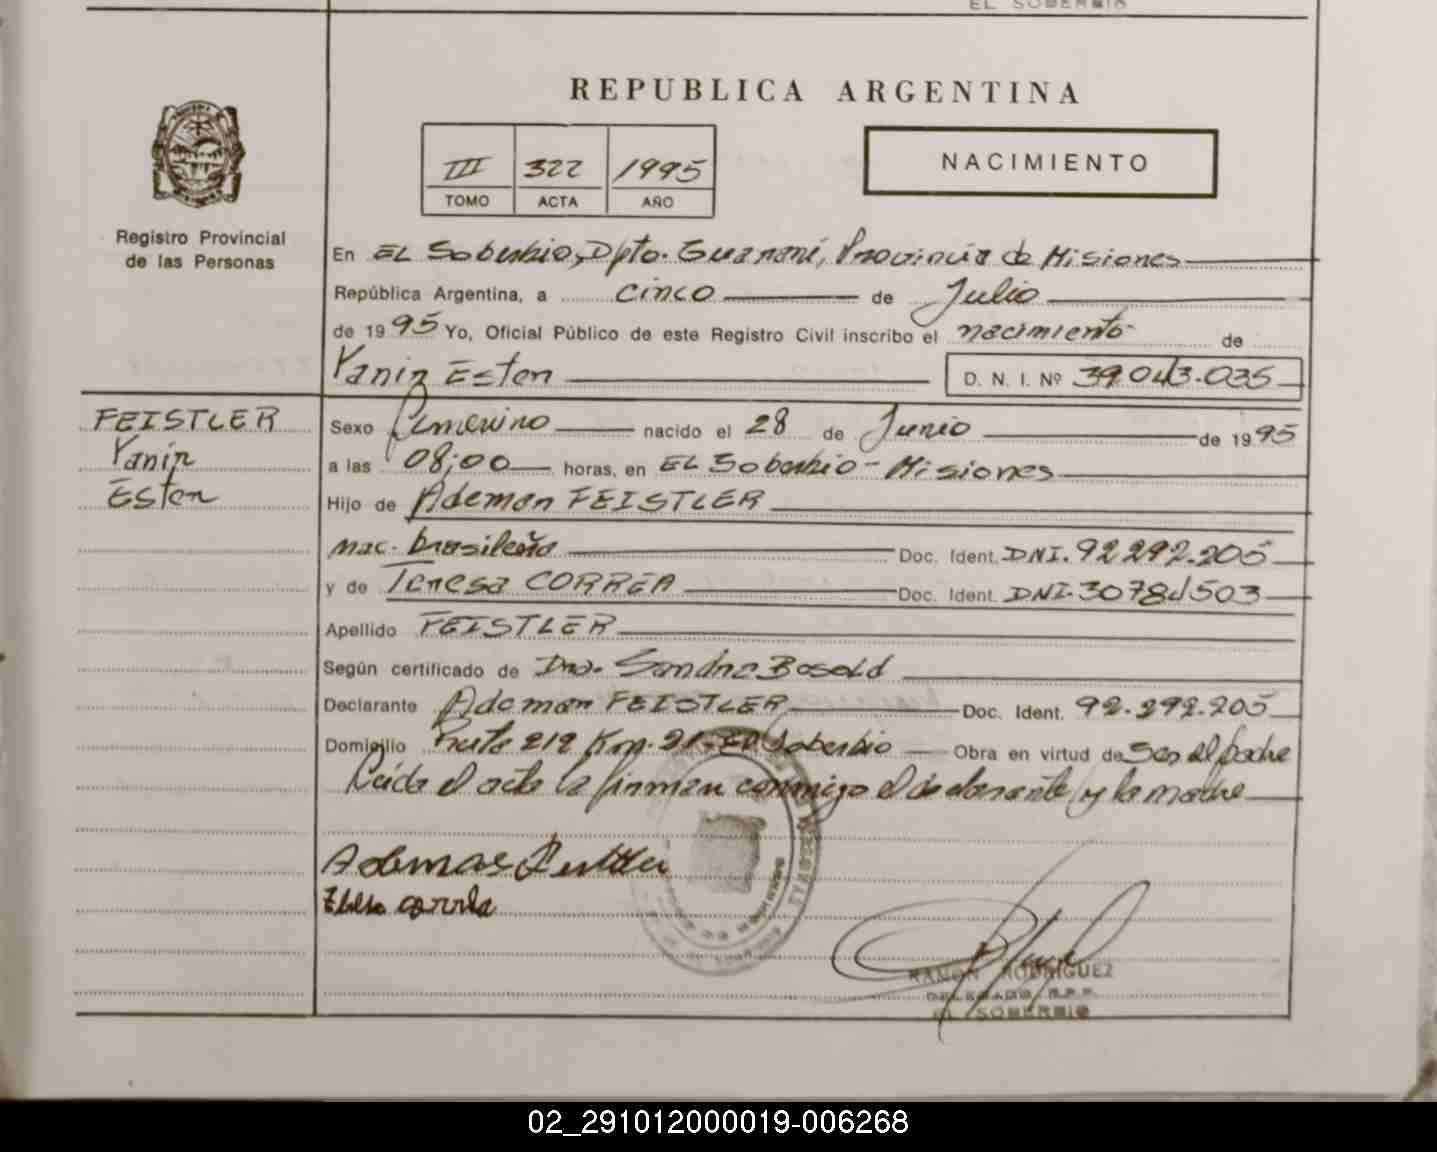 EL SOBERBIO
REPUBLICA ARGENTINA
III 322 1995
TOMO ACTA AÑO
NACIMIENTO
Registro Provincial
de las Personas
En EL Soberbio, Dpto. Guaraní, Provincia de Misiones
República Argentina, a cinco de Julio
de 1995 Yo, Oficial Público de este Registro Civil inscribo el nacimiento de
Yanin Ester D. N. I. Nº 39.043.035
FEISTLER
Yanin
Ester
Sexo femenino nacido el 28 de Junio de 1995
a las 08;00 horas, en EL Soberbio - Misiones
Hijo de Ademar FEISTLER
nac. brasileña Doc. Ident. DNI. 92.292.205
y de Teresa CORREA Doc. Ident. DNI.
Apellido FEISTLER
Según certificado de Dra. Sandra
Declarante Ademar FEISTLER Doc. Ident. 92.292.205
Domicilio Ruta 212 Km. El Soberbio Obra en virtud de Ser el padre
Leída el acta la firman conmigo el declarante y la madre
Ademar
correa
RAMON RODRIGUEZ
DELEGADO R.P.P.
EL SOBERBIO
02_291012000019-006268